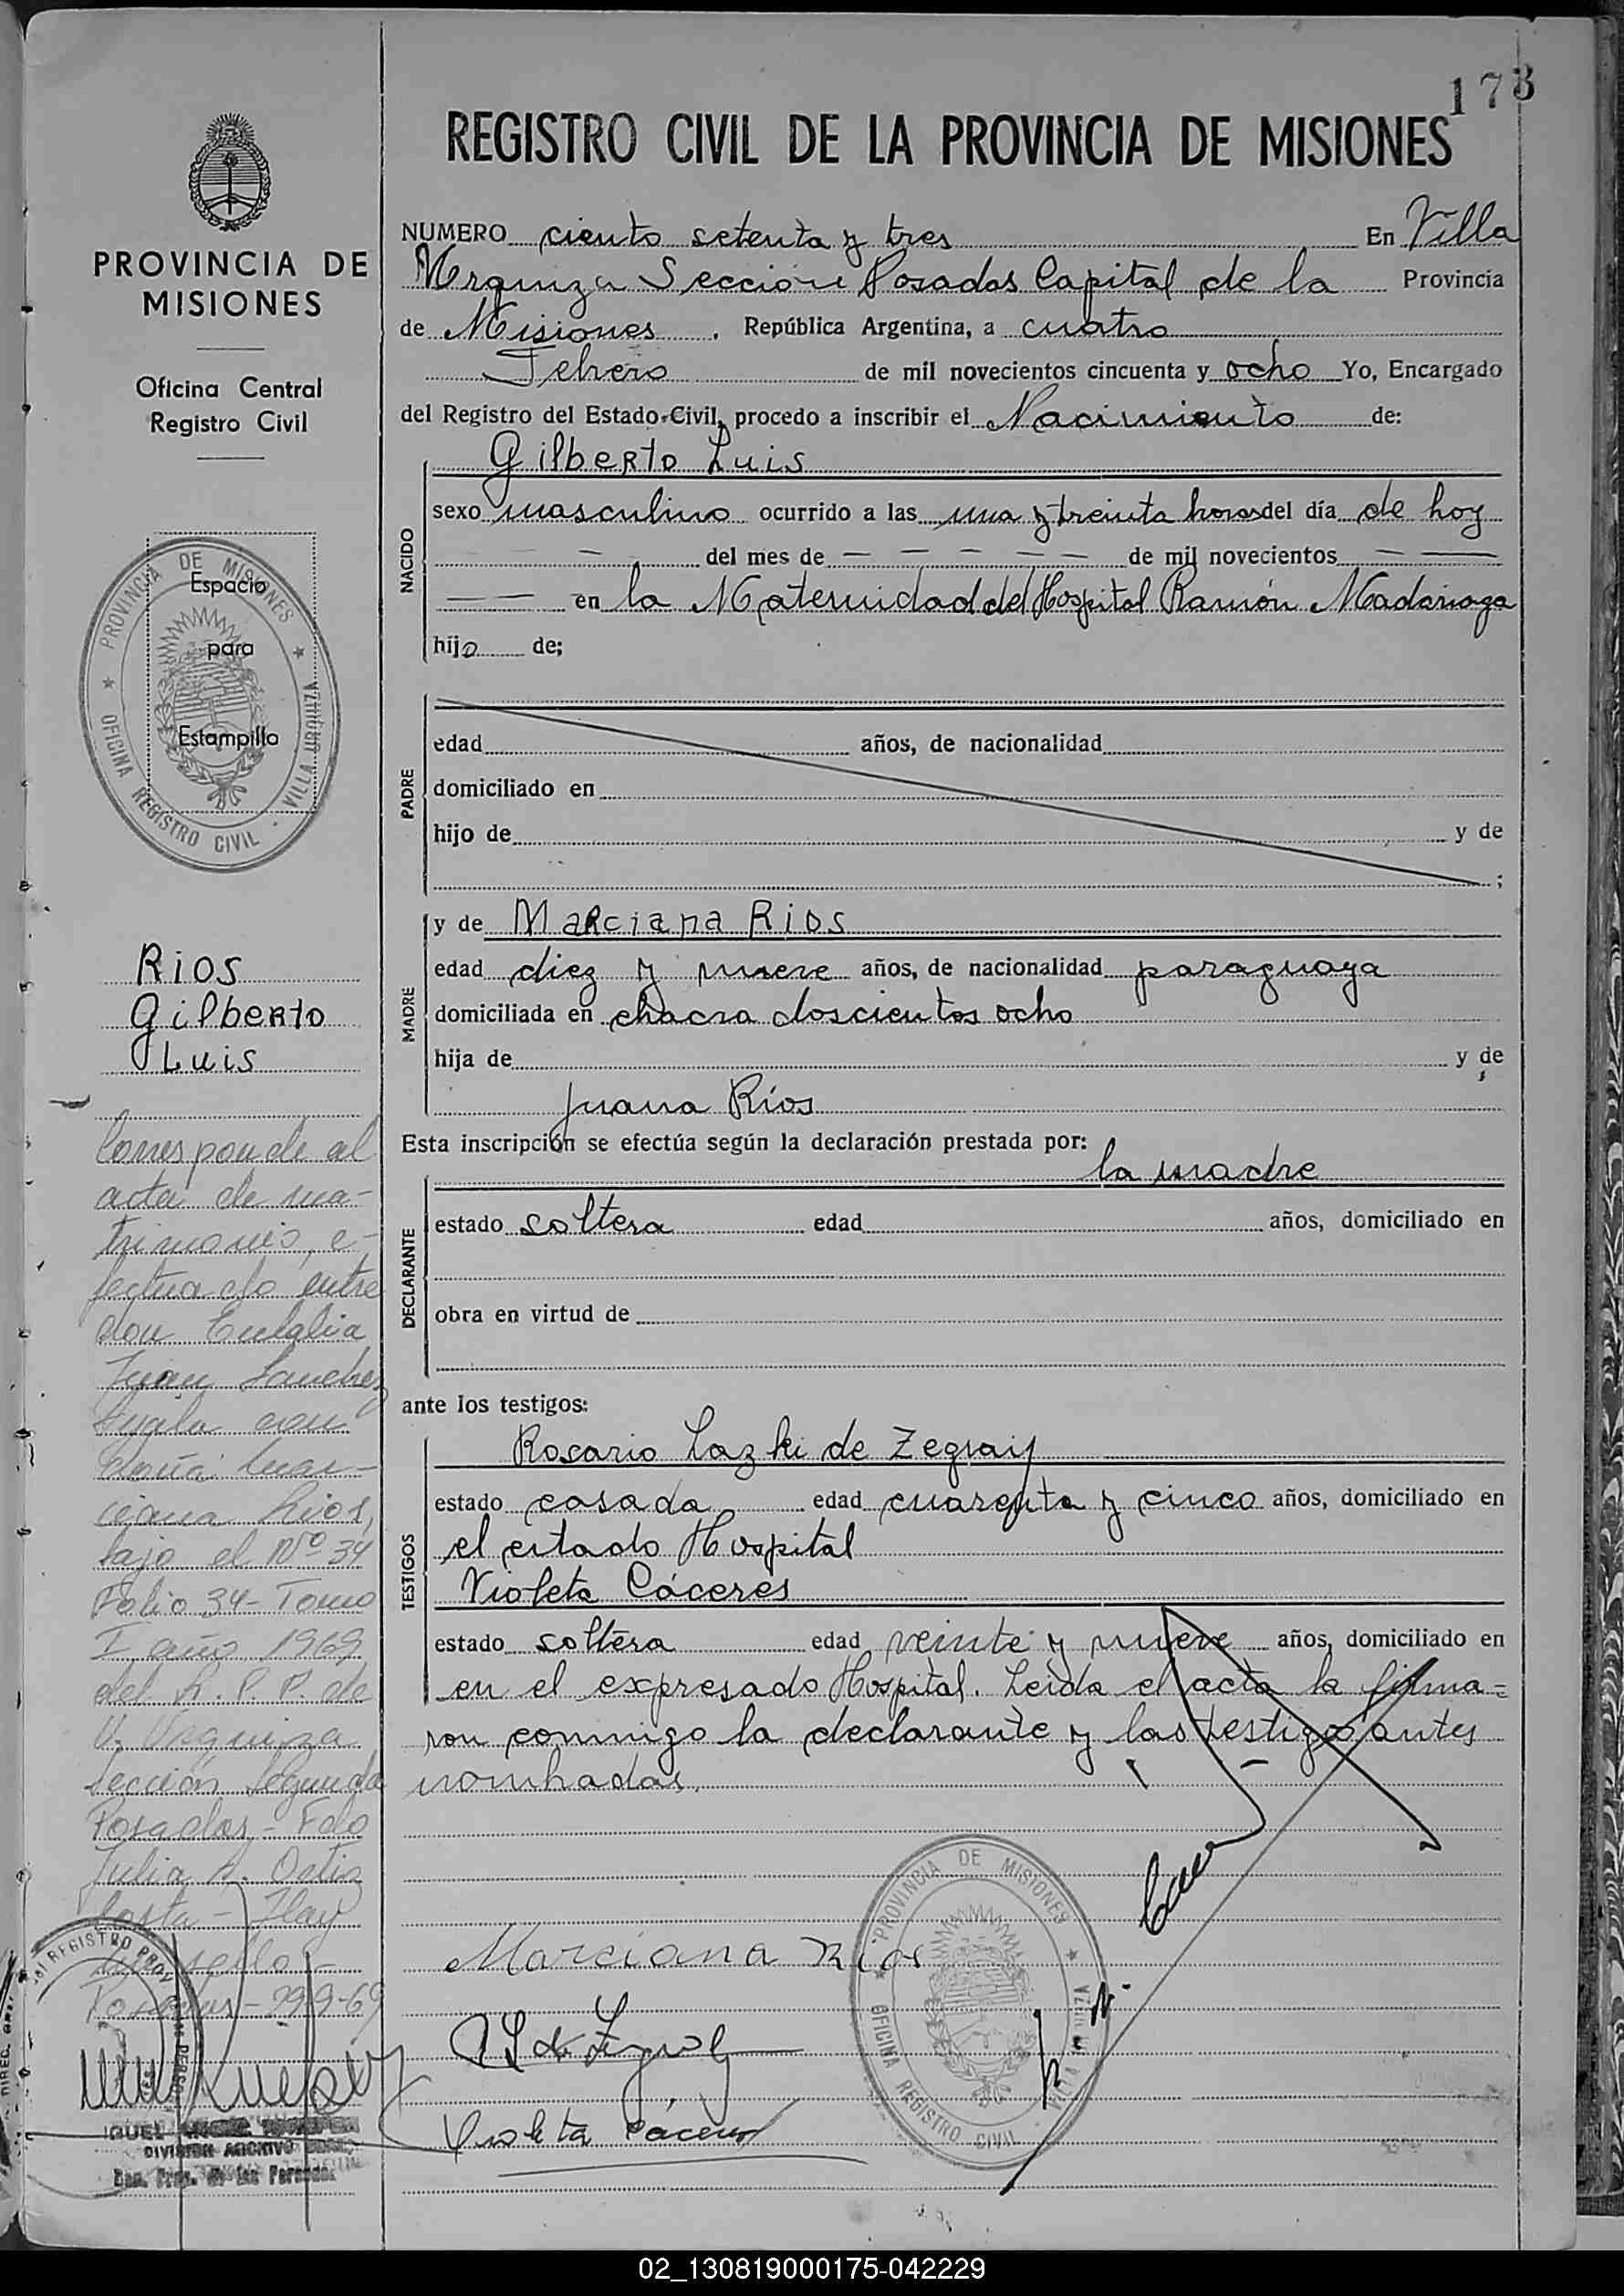 173
REGISTRO CIVIL DE LA PROVINCIA DE MISIONES
PROVINCIA DE
MISIONES
Oficina Central
Registro Civil
PROVINCIA DE MISIONES
OFICINA REGISTRO CIVIL - VILLA URQUIZA
Espacio
para
Estampilla
Rios
Gilberto
Luis
Corresponde al
acta de ma-
trimonio, e-
fectuado entre
don Eulalia
Juan Sanchez
Ayala con
doña Mar-
ciana Rios,
bajo el Nº 34
Folio 34 - Tomo
I año 1969
del R. P. P. de
V. Urquiza
Sección Segunda
Posadas - Fdo
Julia A. Ortiz
Costa - Hay
un sello -
Posadas - 29-9-69
DIVISION ARCHIVO
NUMERO ciento setenta y tres En Villa
Urquiza Sección Posadas Capital de la Provincia
de Misiones, República Argentina, a cuatro
Febrero de mil novecientos cincuenta y ocho Yo, Encargado
del Registro del Estado Civil, procedo a inscribir el Nacimiento de:
NACIDO
Gilberto Luis
sexo masculino ocurrido a las una y treinta horas del día de hoy
— — del mes de — — — — — de mil novecientos — —
— — en la Maternidad del Hospital Ramón Madariaga
hijo de;
PADRE
edad años, de nacionalidad
domiciliado en
hijo de y de
;
MADRE
y de Marciana Rios
edad diez y nueve años, de nacionalidad paraguaya
domiciliada en chacra doscientos ocho
hija de y de
Juana Ríos
Esta inscripción se efectúa según la declaración prestada por:
la madre
DECLARANTE
estado soltera edad años, domiciliado en
obra en virtud de
ante los testigos:
TESTIGOS
Rosario Lazki de Zegray
estado casada edad cuarenta y cinco años, domiciliado en
el citado Hospital
Violeta Cáceres
estado soltera edad veinte y nueve años, domiciliado en
en el expresado Hospital. Leida el acta la firma=
ron conmigo la declarante y las testigos antes
nombradas.
Marciana Rios
Violeta Cáceres
PROVINCIA DE MISIONES
OFICINA REGISTRO CIVIL
02_130819000175-042229